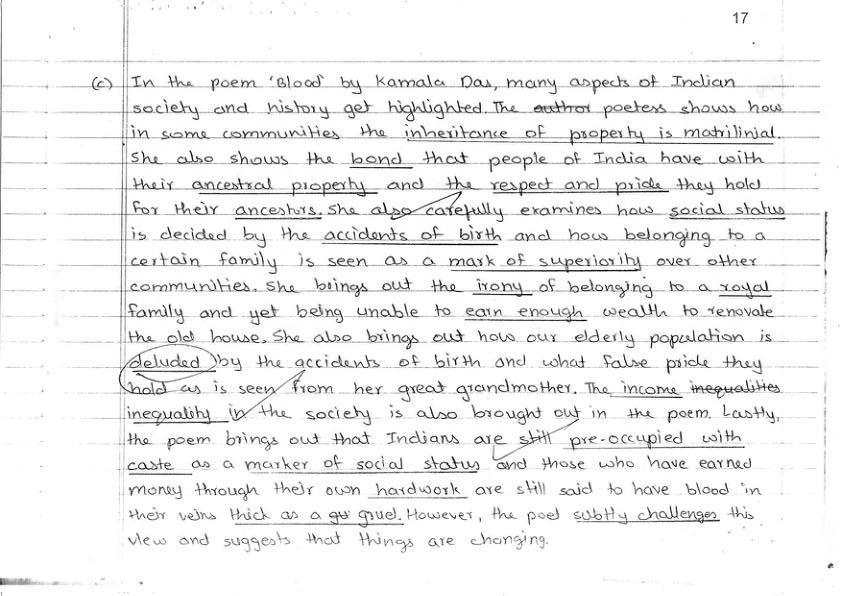 17
(c) In the poem 'Blood' by Kamala Das, many aspects of Indian
society and history get highlighted. The author poetess shows how
in some communities the inheritance of property is matrilinial.
She also shows the bond that people of India have with
their ancestral property and the respect and pride they hold
for their ancestors. She also carefully examines how social status
is decided by the accidents of birth and how belonging to a
certain family is seen as a mark of superiority over other
communities. She brings out the irony of belonging to a royal
family and yet being unable to earn enough wealth to renovate
the old house. She also brings out how our elderly population is
deluded by the accidents of birth and what false pride they
hold as is seen from her great grandmother. The income inequalities
inequality in the society is also brought out in the poem. Lastly,
the poem brings out that Indians are still pre-occupied with
caste as a marker of social status and those who have earned
money through their own hardwork are still said to have blood in
their veins thick as a gruel. However, the poet subtly challenges this
view and suggests that things are changing.